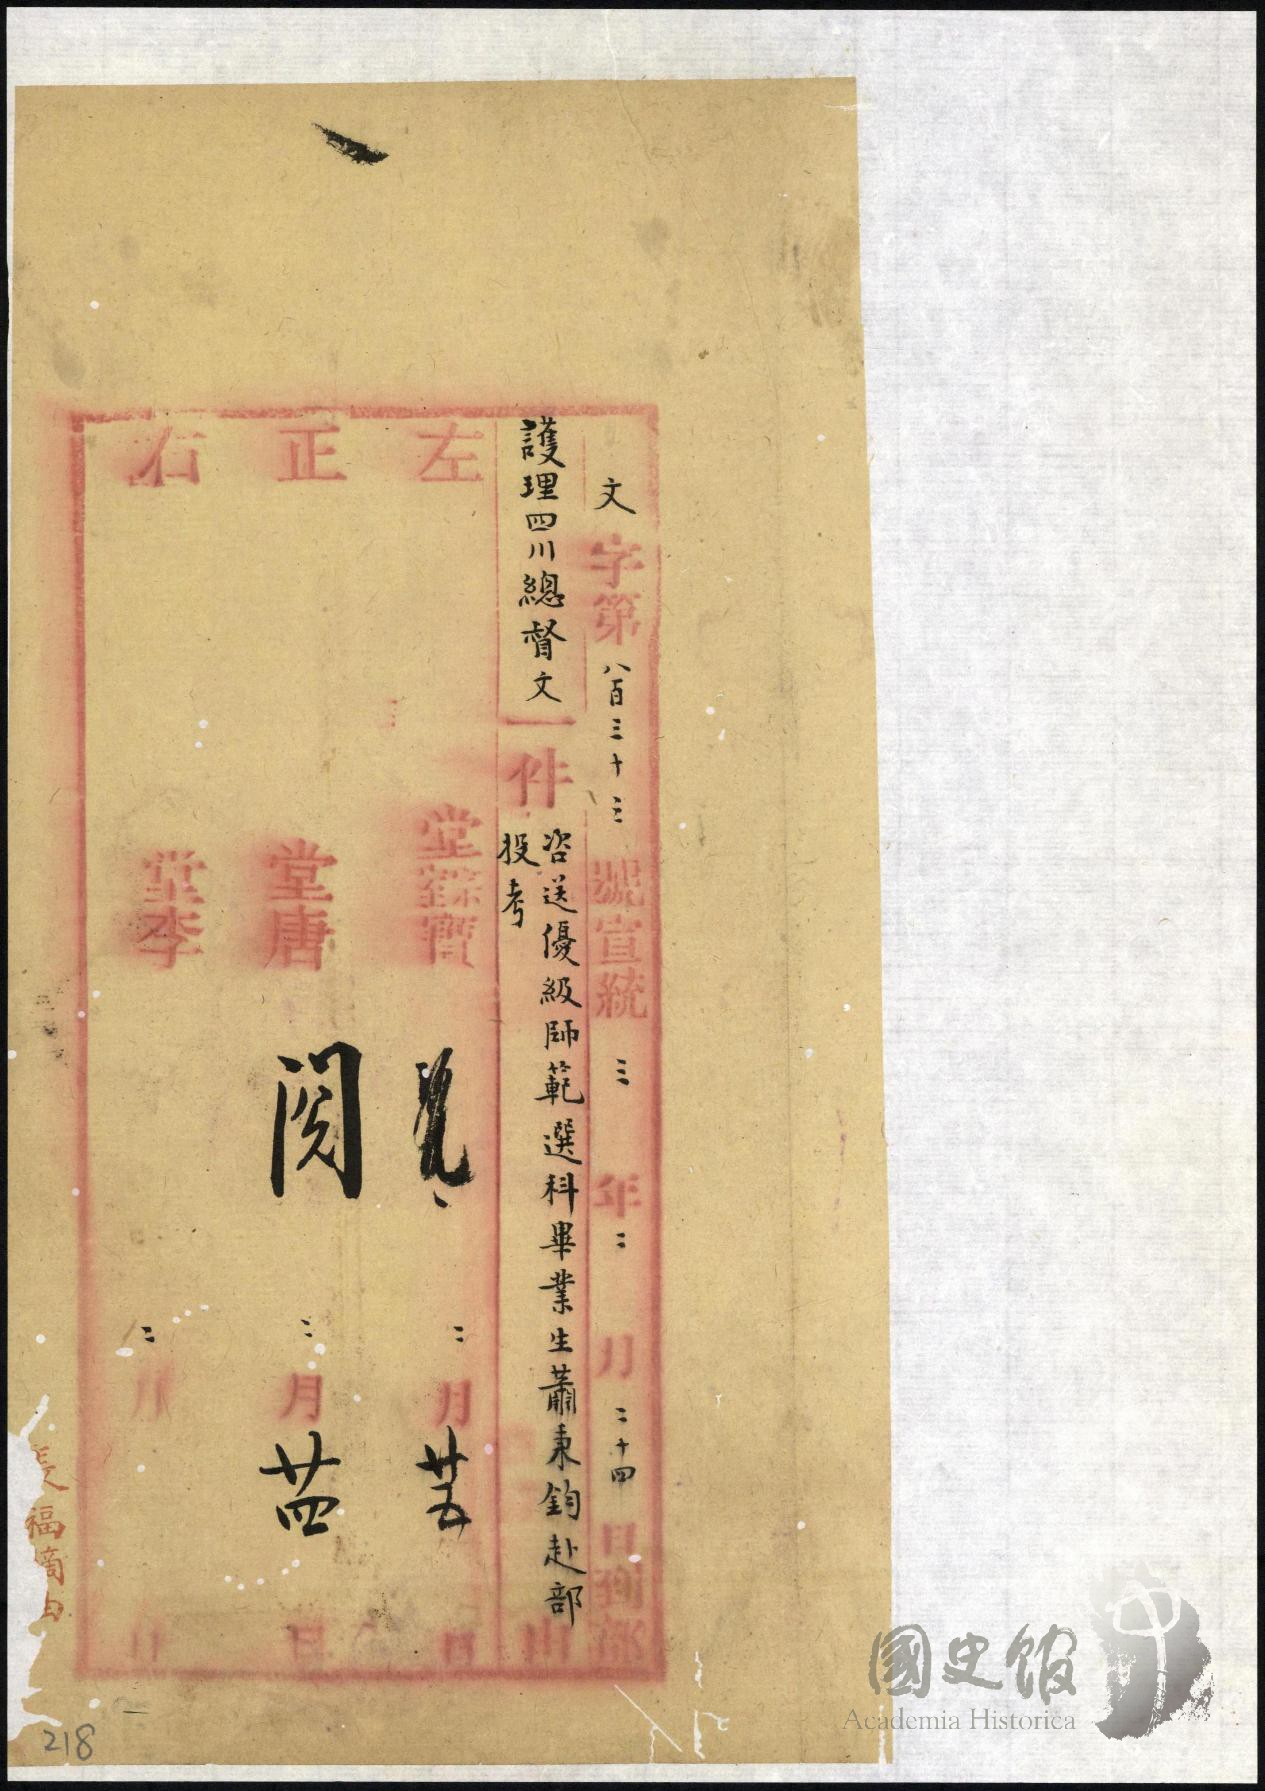 文字第八百三十三號宣統三年二月二十四日到部
護理四川總督文一件咨送優級師範選科畢業生蕭秉鈞赴部
投考
由
左堂寶二月廿五日
正堂唐閱二月廿四日
右堂李二月日
長福摘由
218
國史館
Academia Historica